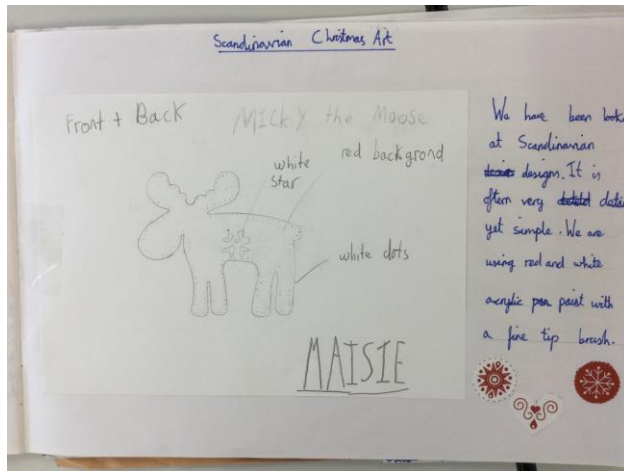 Scandinavian Christmas Art
Front + Back
MICKY the Moose
white
star
red backgrond
white dots
MAISIE
We have been look
at Scandinavian
designs. It is
often very detai
yet simple. We are
using red and white
acrylic paint with
a fine tip brush.